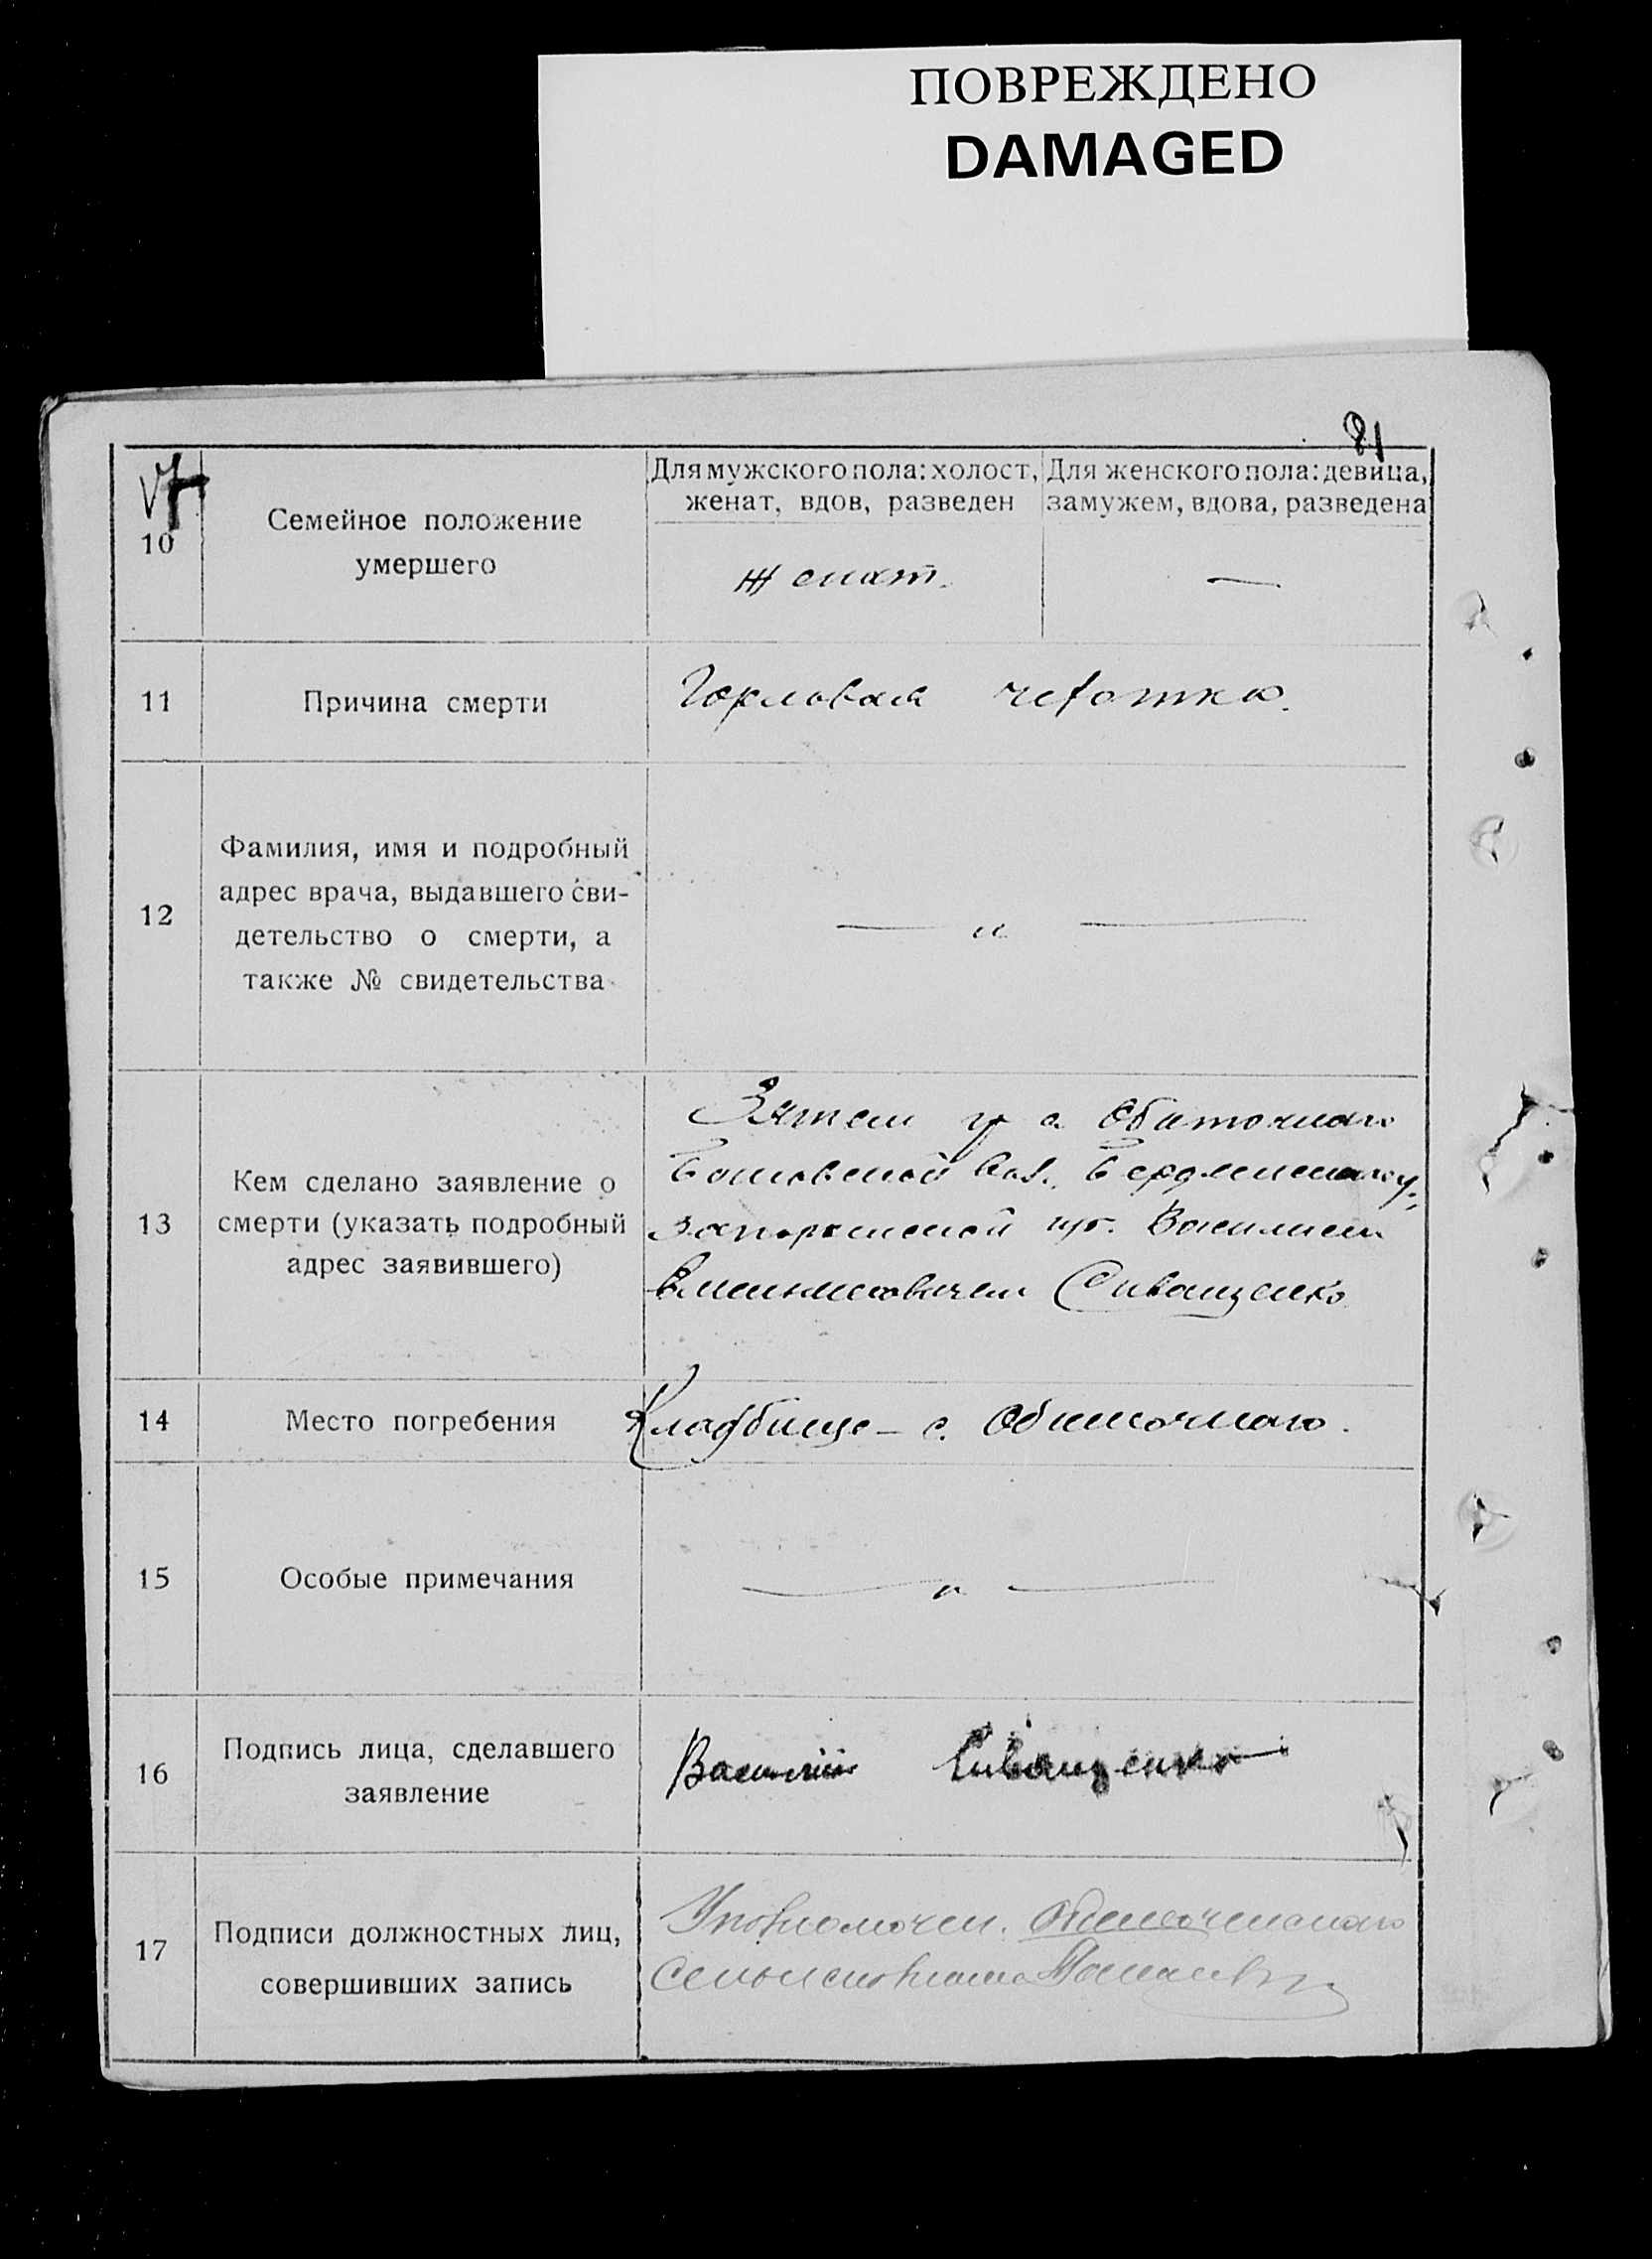 ПОВРЕЖДЕНО
DAMAGED
81
10
Семейное положение
умершего
Для мужского пола: холост,
женат, вдов, разведен
Для женского пола: девица,
замужем, вдова, разведена
женат.
—
11
Причина смерти
Горловая чехотка.
12
Фамилия, имя и подробный
адрес врача, выдавшего сви-
детельство о смерти, а
также № свидетельства
— „ —
13
Кем сделано заявление о
смерти (указать подробный
адрес заявившего)
Зятем гр с. Обиточного
вол. Бердянского у.
Запорожской губ. Василием
Сиващенко
14
Место погребения
Кладбище – с. Обиточного.
15
Особые примечания
— „ —
16
Подпись лица, сделавшего
заявление
Василий Сиващенко
17
Подписи должностных лиц,
совершивших запись
Уполномочен. Обиточенского